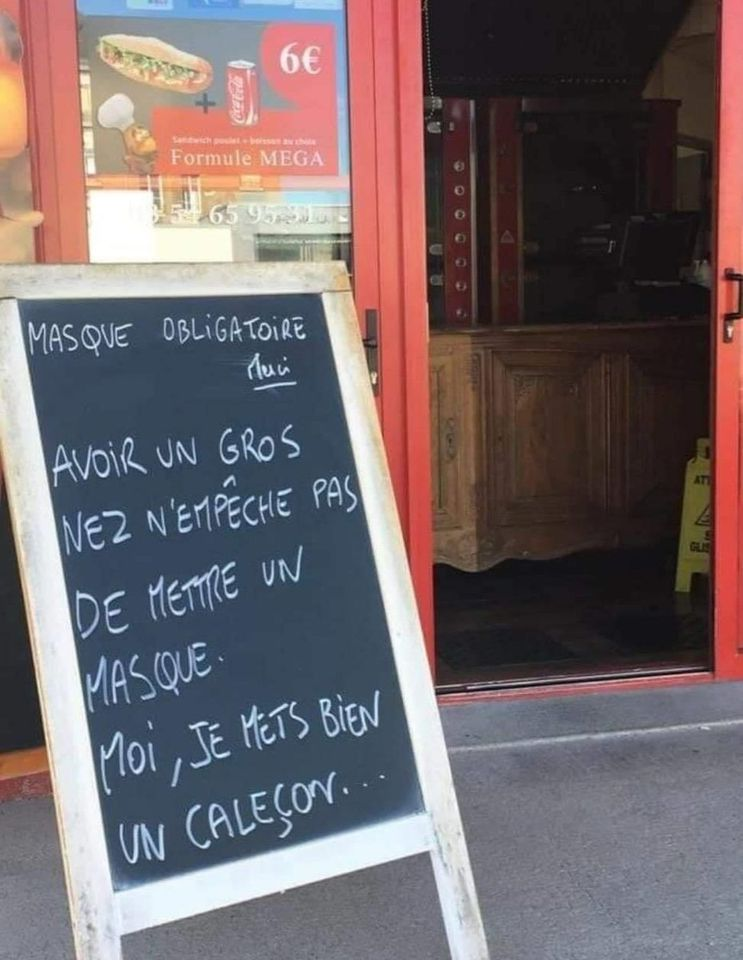 6€
Coca-Cola
+
Sandwich poulet + boisson au choix
Formule MEGA
MASQUE OBLIGATOIRE
Merci
AVOIR UN GROS
NEZ N'EMPÊCHE PAS
DE METTRE UN
MASQUE.
MOI, JE METS BIEN
UN CALEÇON...
ATT